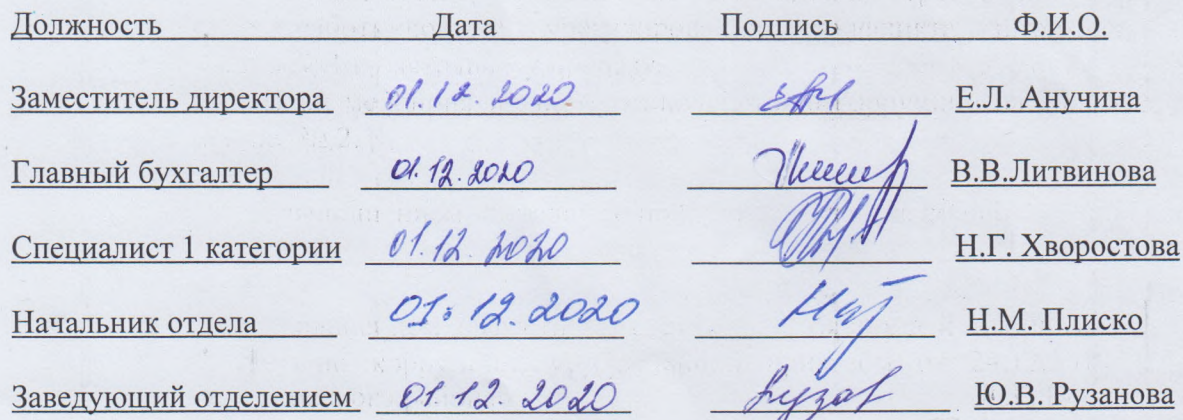 Должность Дата Подпись Ф.И.О.
Заместитель директора 01.12.2020 Е.Л. Анучина
Главный бухгалтер 01.12.2020 В.В.Литвинова
Специалист 1 категории 01.12.2020 Н.Г. Хворостова
Начальник отдела 01.12.2020 Н.М. Плиско
Заведующий отделением 01.12.2020 Ю.В. Рузанова